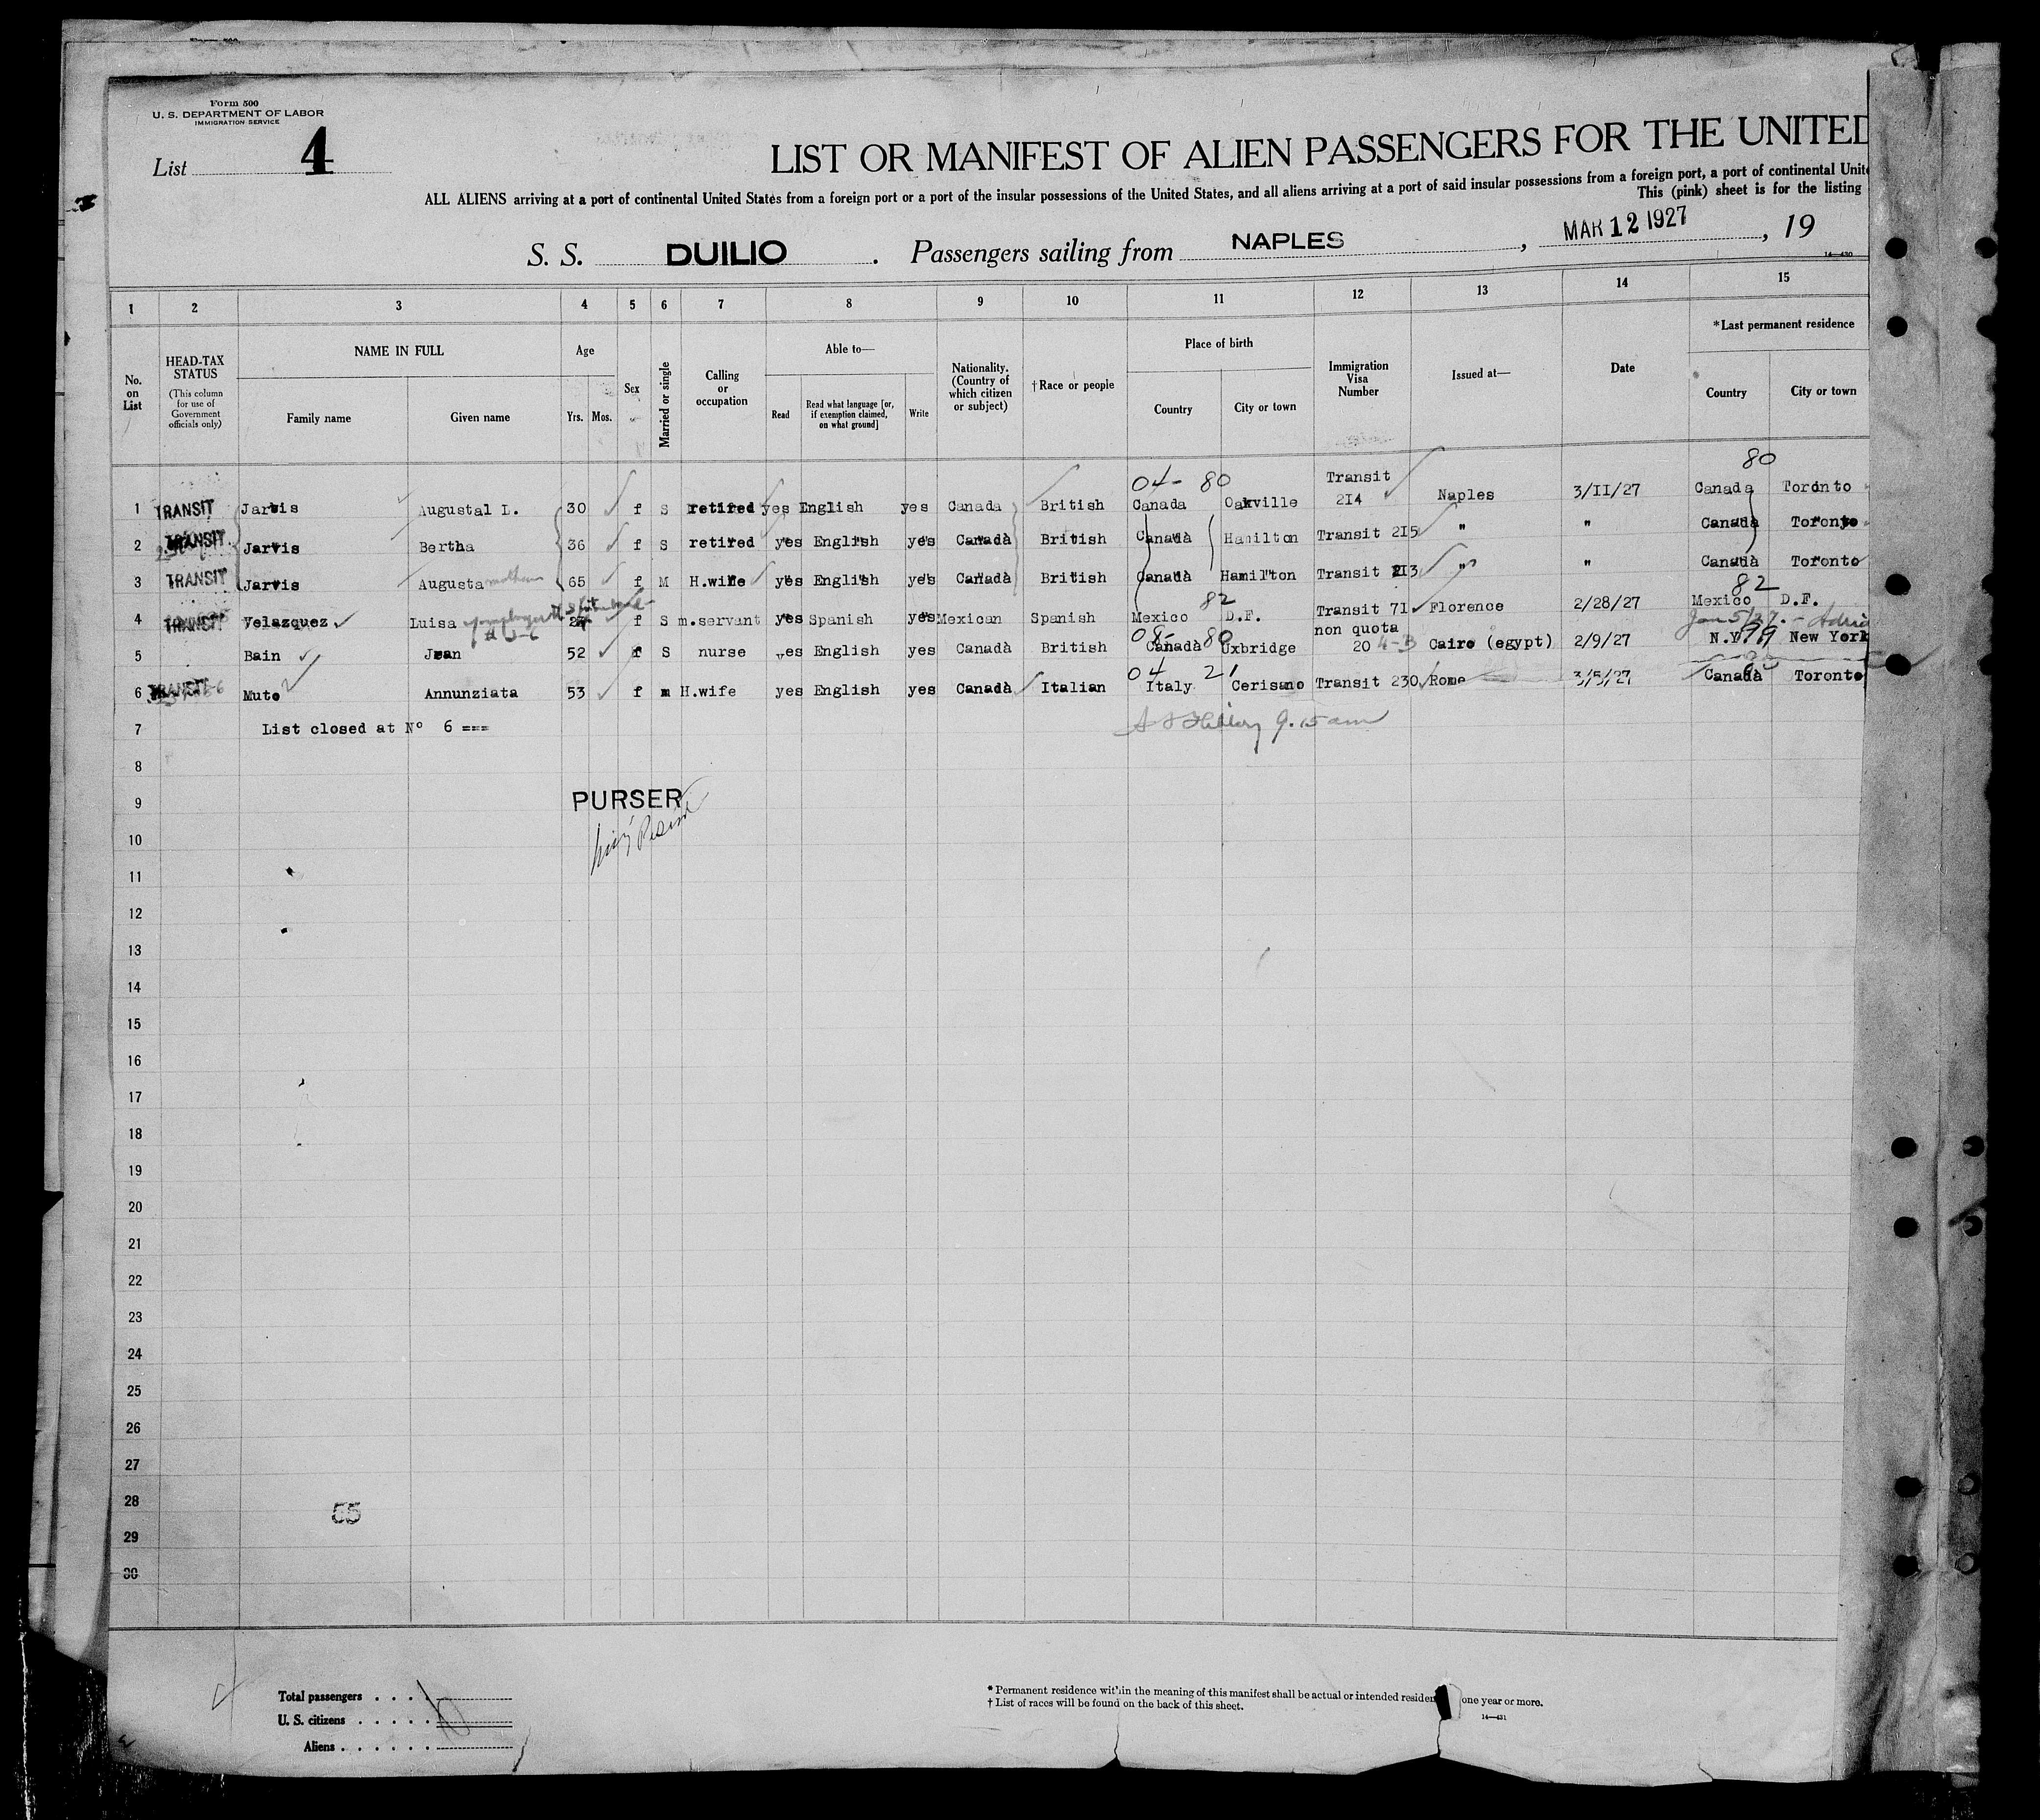 Form 500
U. S. DEPARTMENT OF LABOR
IMMIGRATION SERVICE
List 4
LIST OR MANIFEST OF ALIEN PASSENGERS FOR THE UNITED
ALL ALIENS arriving at a port of continental United States from a foreign port or a port of the insular possessions of the United States, and all aliens arriving at a port of said insular possessions from a foreign port, a port of continental Unite
This (pink) sheet is for the listing
S. S. DUILIO . Passengers sailing from NAPLES , MAR 12 1927 , 19
14—430
1 2 3 4 5 6 7 8 9 10 11 12 13 14 15
No. on List
HEAD-TAX STATUS
(This column for use of Government officials only)
NAME IN FULL
Family name
Given name
Age
Yrs. Mos.
Sex
Married or single
Calling or occupation
Able to—
Read
Read what language [or, if exemption claimed, on what ground]
Write
Nationality. (Country of which citizen or subject)
†Race or people
Place of birth
Country
City or town
Immigration Visa Number
Issued at—
Date
*Last permanent residence
Country
City or town
04- 80 80
1 TRANSIT Jarvis Augustal L. 30 f S retired yes English yes Canada British Canada Oakville Transit 214 Naples 3/II/27 Canada Toronto
2 TRANSIT Jarvis Bertha 36 f S retired yes English yes Canadà British Canadà Hamilton Transit 2I5 " " Canadà Toronto
3 TRANSIT Jarvis Augusta mother 65 f M H.wife yes English yes Canadà British Canadà Hamilton Transit 2I3 " " Canadà Toronto
82 82
4 TRANSIT Velazquez Luisa f S m.servant yes Spanish yes Mexican Spanish Mexico D.F. Transit 71 Florence 2/28/27 Mexico D.F.
08- 80 99
5 Bain Jean 52 f S nurse yes English yes Canadà British Canadà Uxbridge non quota 20 4-B Cairo (egypt) 2/9/27 N.Y. New York
04 21
6 TRANSIT Muto Annunziata 53 f m H.wife yes English yes Canadà Italian Italy Cerisano Transit 230 Rome 3/5/27 Canadà Toronto
7 List closed at Nº 6 ===
9.15 am
8
9
PURSER
10
11
12
13
14
15
16
17
18
19
20
21
22
23
24
25
26
27
28
55
29
30
Total passengers . . . .
U. S. citizens . . . . .
Aliens . . . . . .
* Permanent residence within the meaning of this manifest shall be actual or intended residen one year or more.
† List of races will be found on the back of this sheet.
14—431